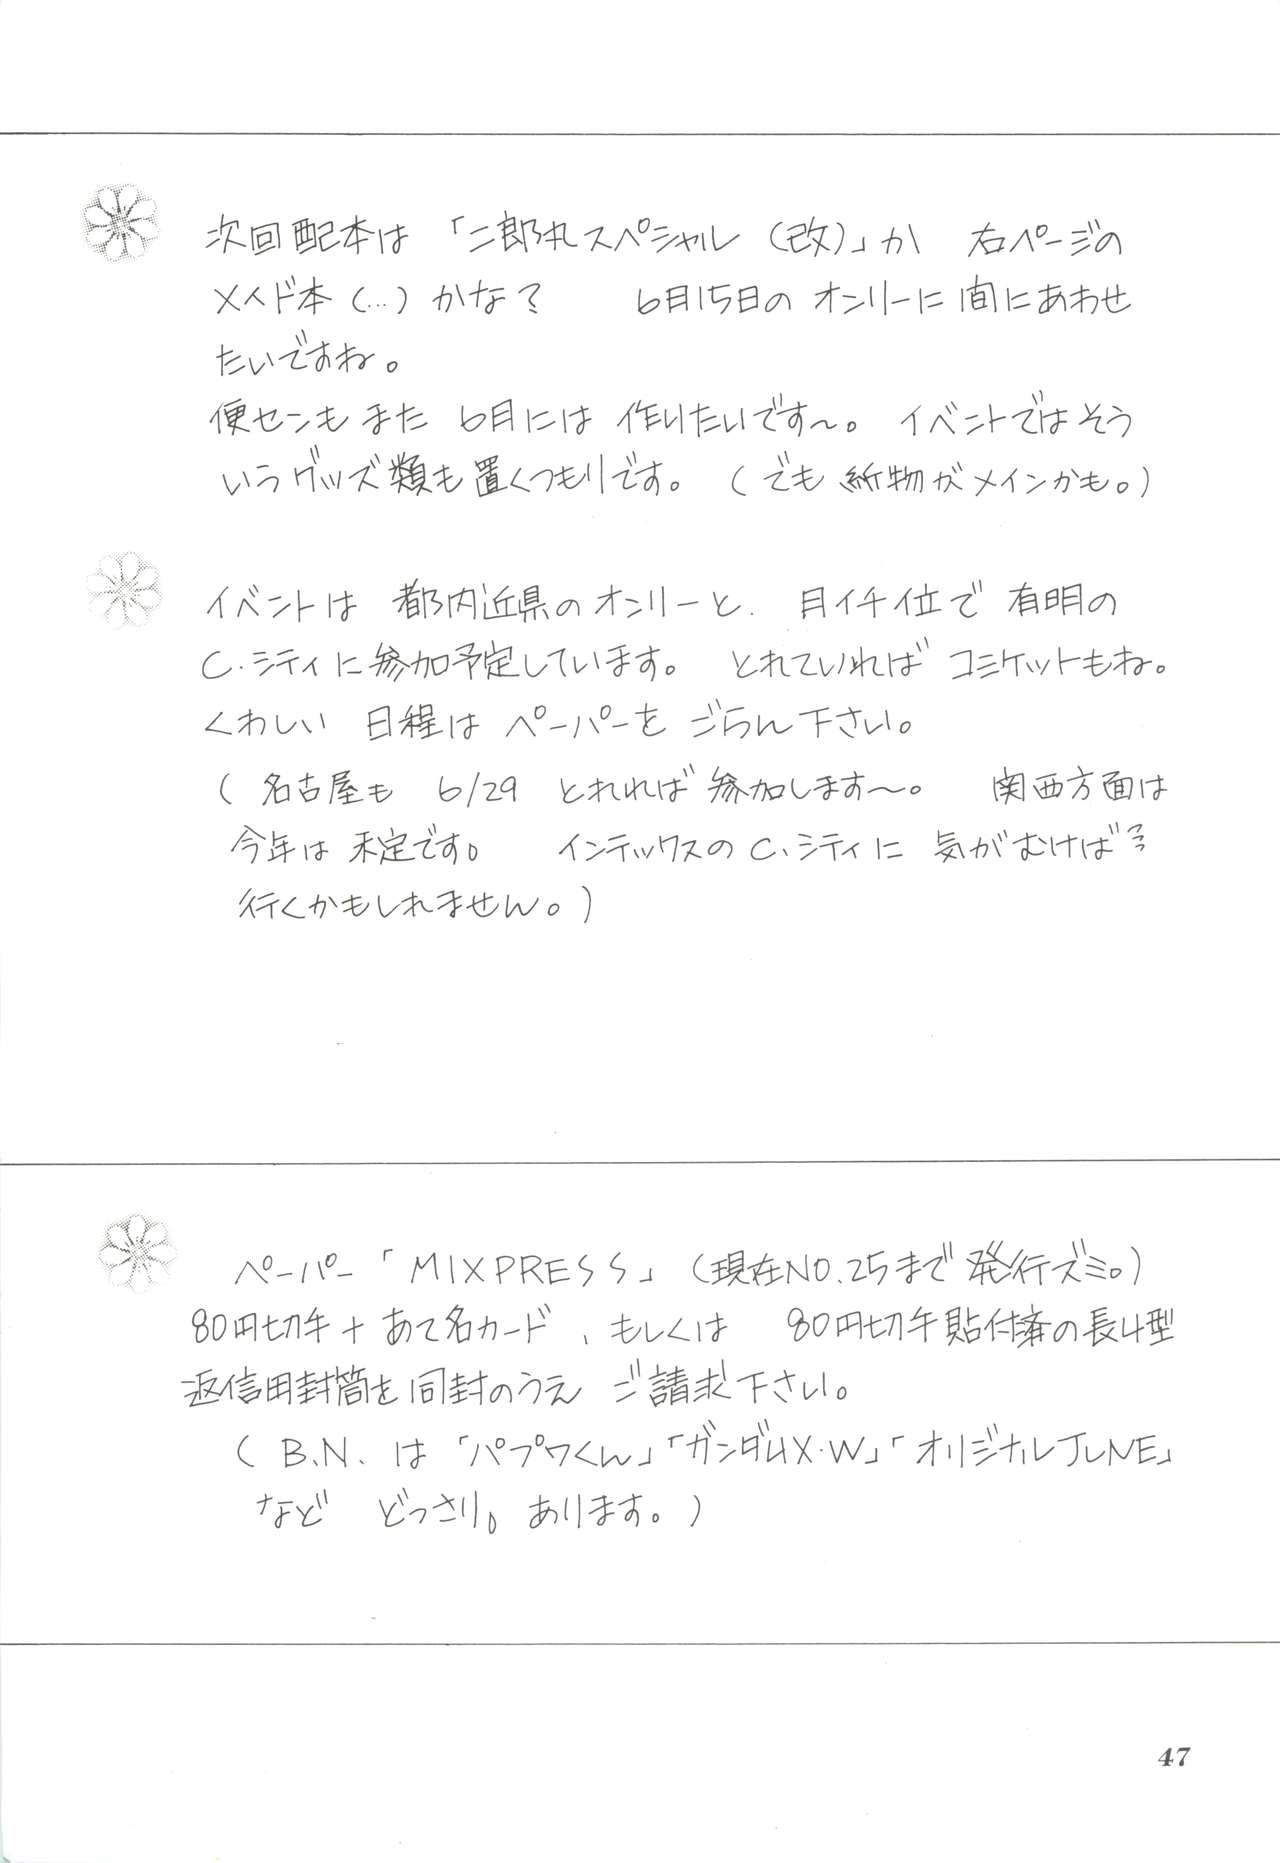 次回配本は「二郎丸スペシャル(改)」か 右ページの
メイド本(...)かな? 6月15日の オンリーに間にあわせ
たいですね。
便センもまた 6月には 作りたいです〜。 イベントではそう
いうグッズ類も置くつもりです。 (でも紙物がメインかも。)
イベントは 都内近県のオンリーと、月イチ位で 有明の
C.シティに参加予定しています。 とれていればコミケットもね。
くわしい 日程は ペーパーを ごらん下さい。
(名古屋も 6/29 とれれば参加します〜。 関西方面は
今年は 未定です。 インテックスのC.シティに 気がむけば??
行くかもしれません。)
ペーパー「MIXPRESS」(現在NO.25まで発行ズミ。)
80円切手+あて名カード、もしくは 80円切手貼付済の長4型
返信用封筒を同封のうえ ご請求下さい。
(B.N.は「パプワくん」「ガンダムX・W」「オリジナルJUNE」
など どっさり。あります。)
47